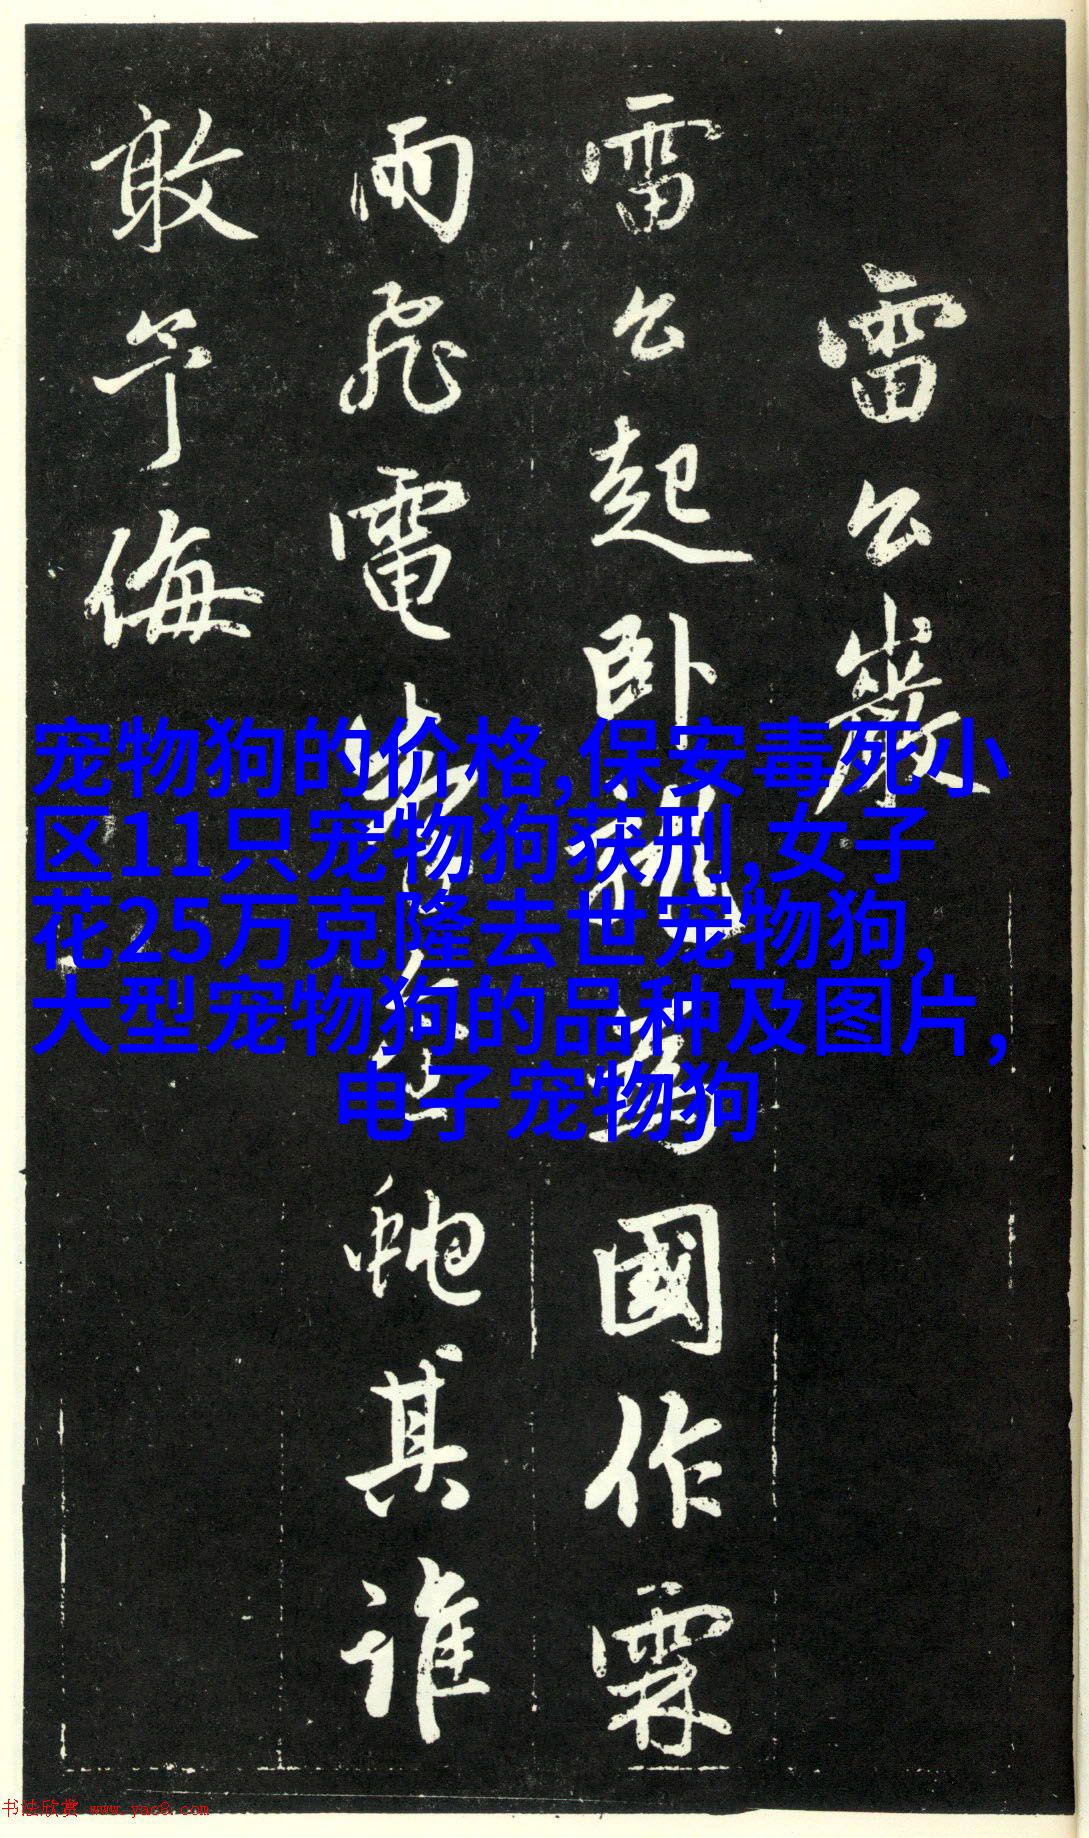 雷公巖
雷公起卧龍為國作霖
雨飛電蛇其誰
敢予侮
宠物狗的价格,保安毒死小
区11只宠物狗获刑,女子
花25万克隆去世宠物狗,
大型宠物狗的品种及图片,
电子宠物狗
书法欣赏 www.yac8.com